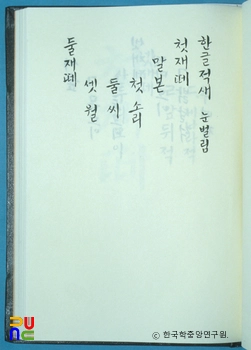 한글적새 눈벌림
첫재떼
말본
첫 소리
둘 씨
셋 월
둘재떼
© 한국학중앙연구원